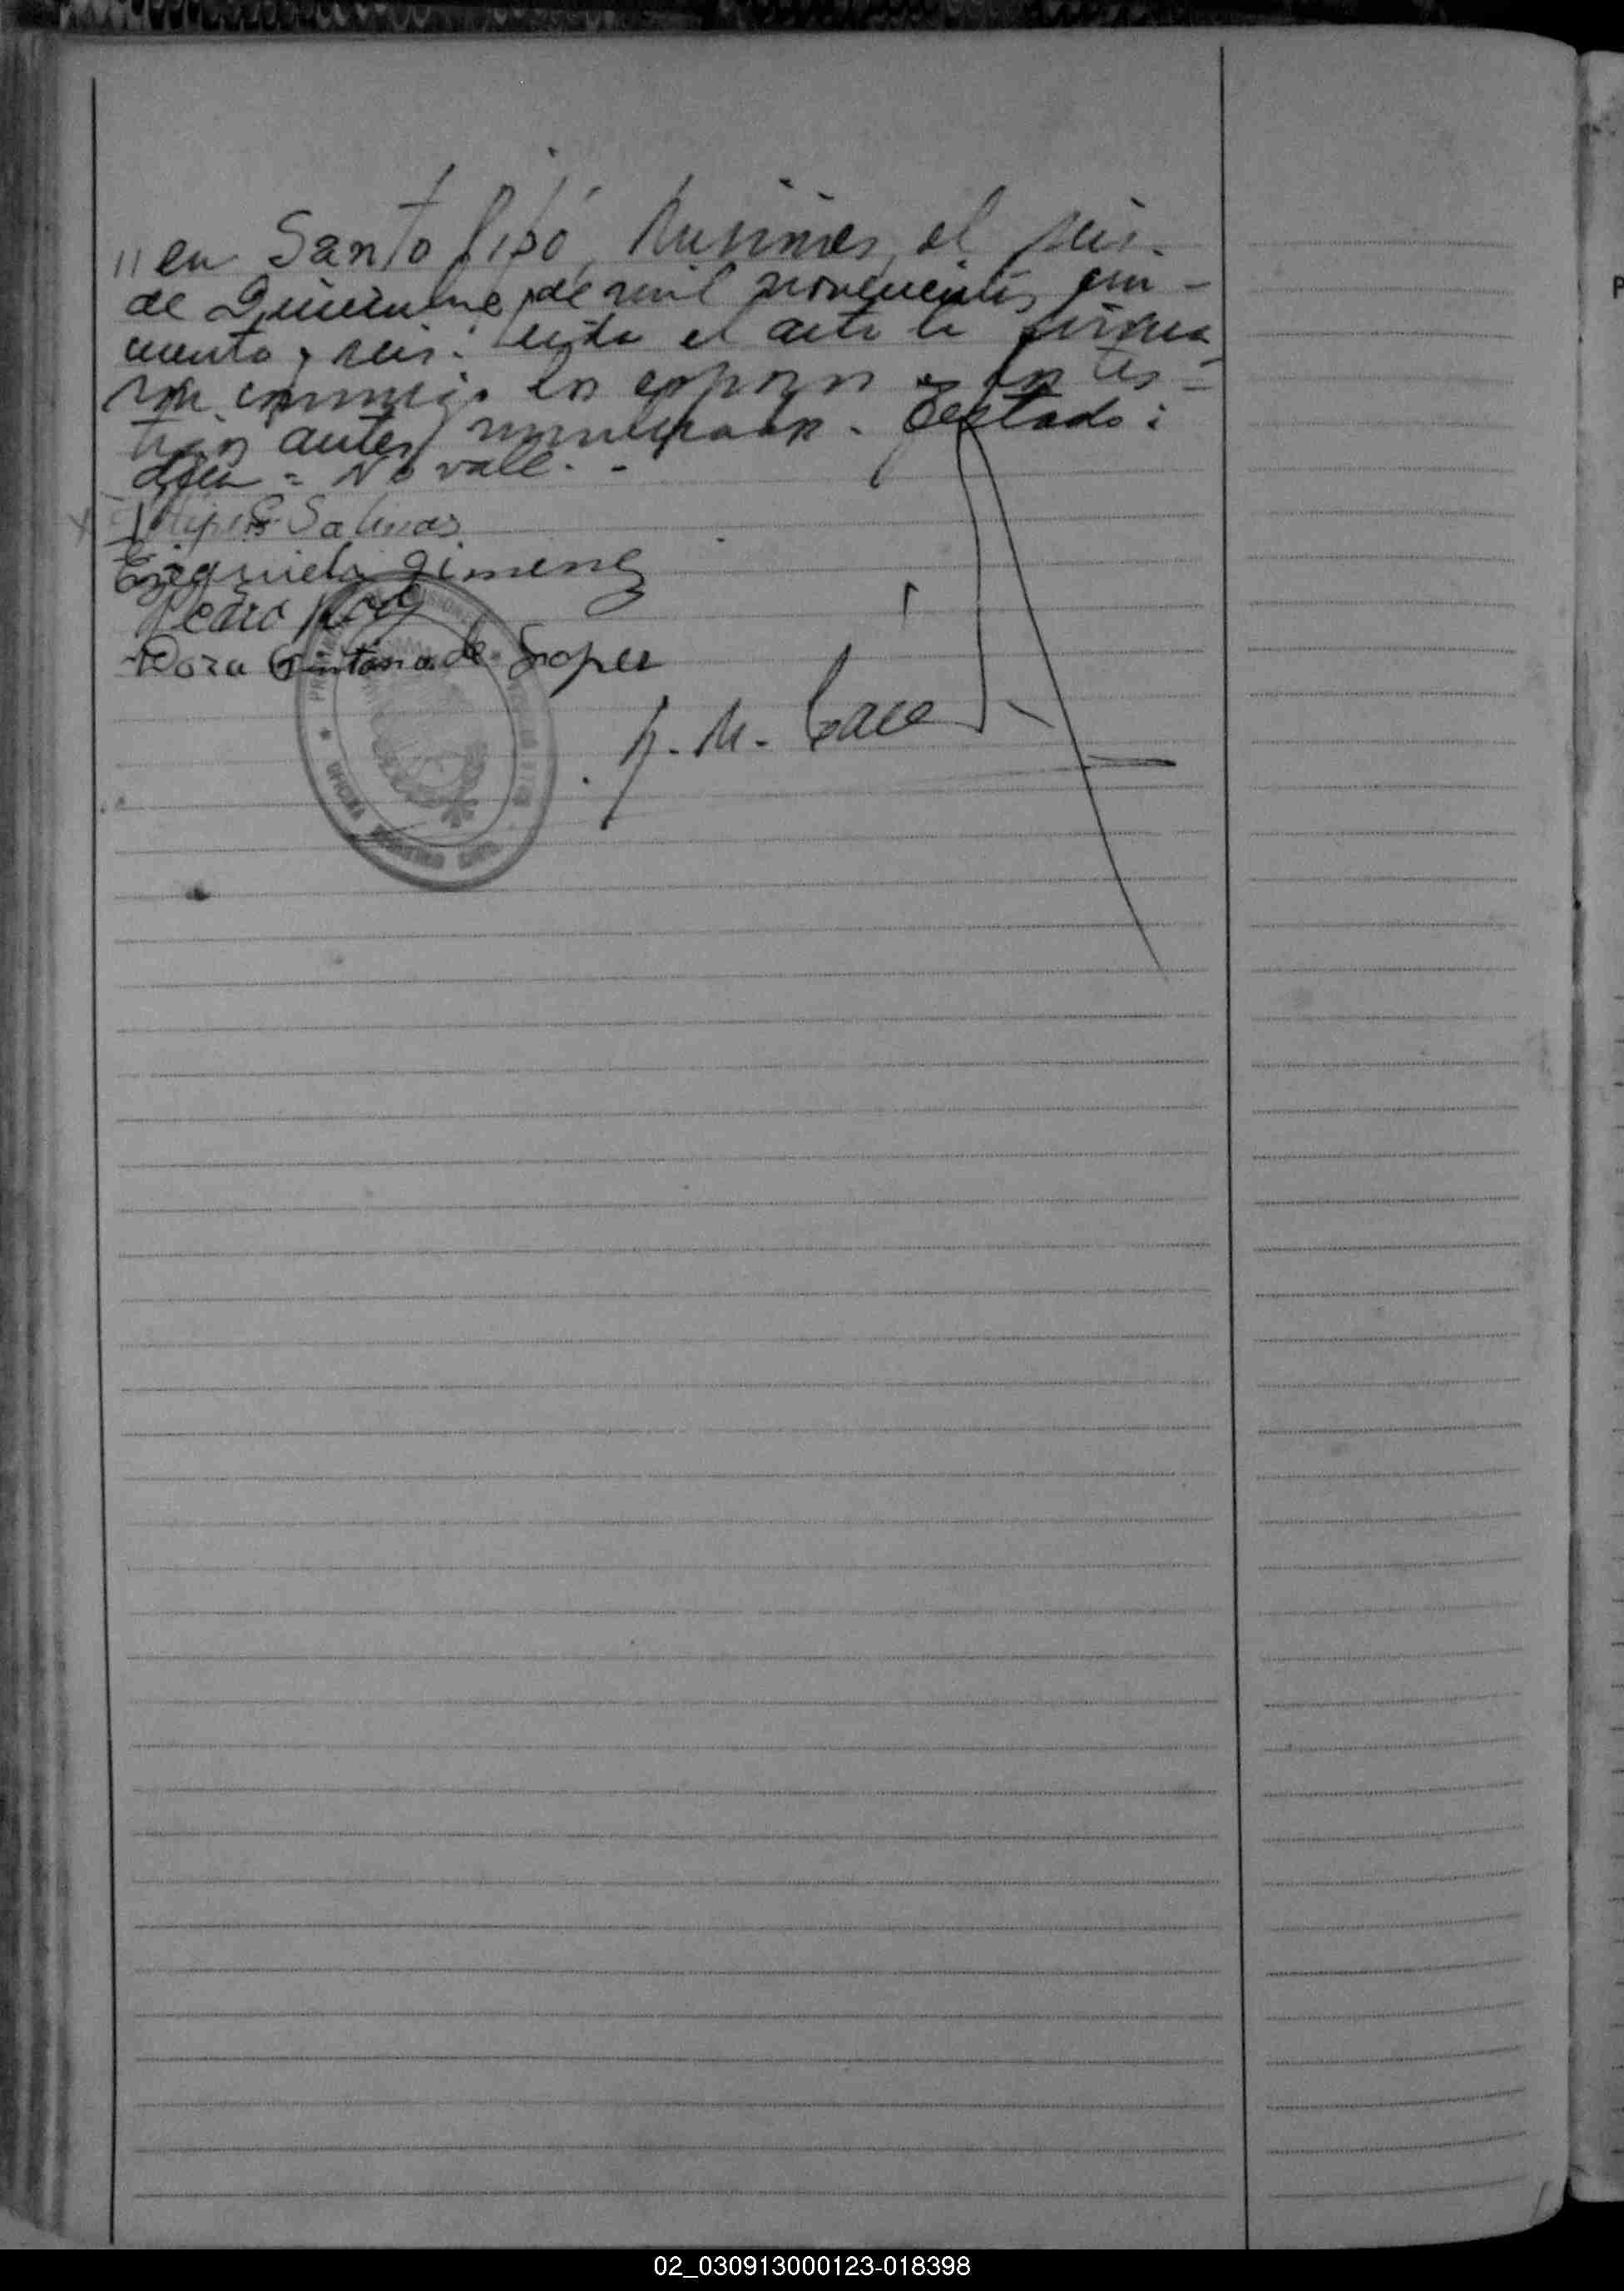 " en Santo Pipó, Misiones, el seis
de Diciembre de mil novecientos cin-
cuenta y seis: Leida el acta la firma
ron conmigo los esposos y los tes=
tigos antes nombrados. Testado:
No vale. -
Salinas
Ezequiela Gimenez
Pedro
Dora Quintana de Lopez
OFICINA REGISTRO CIVIL
02_030913000123-018398